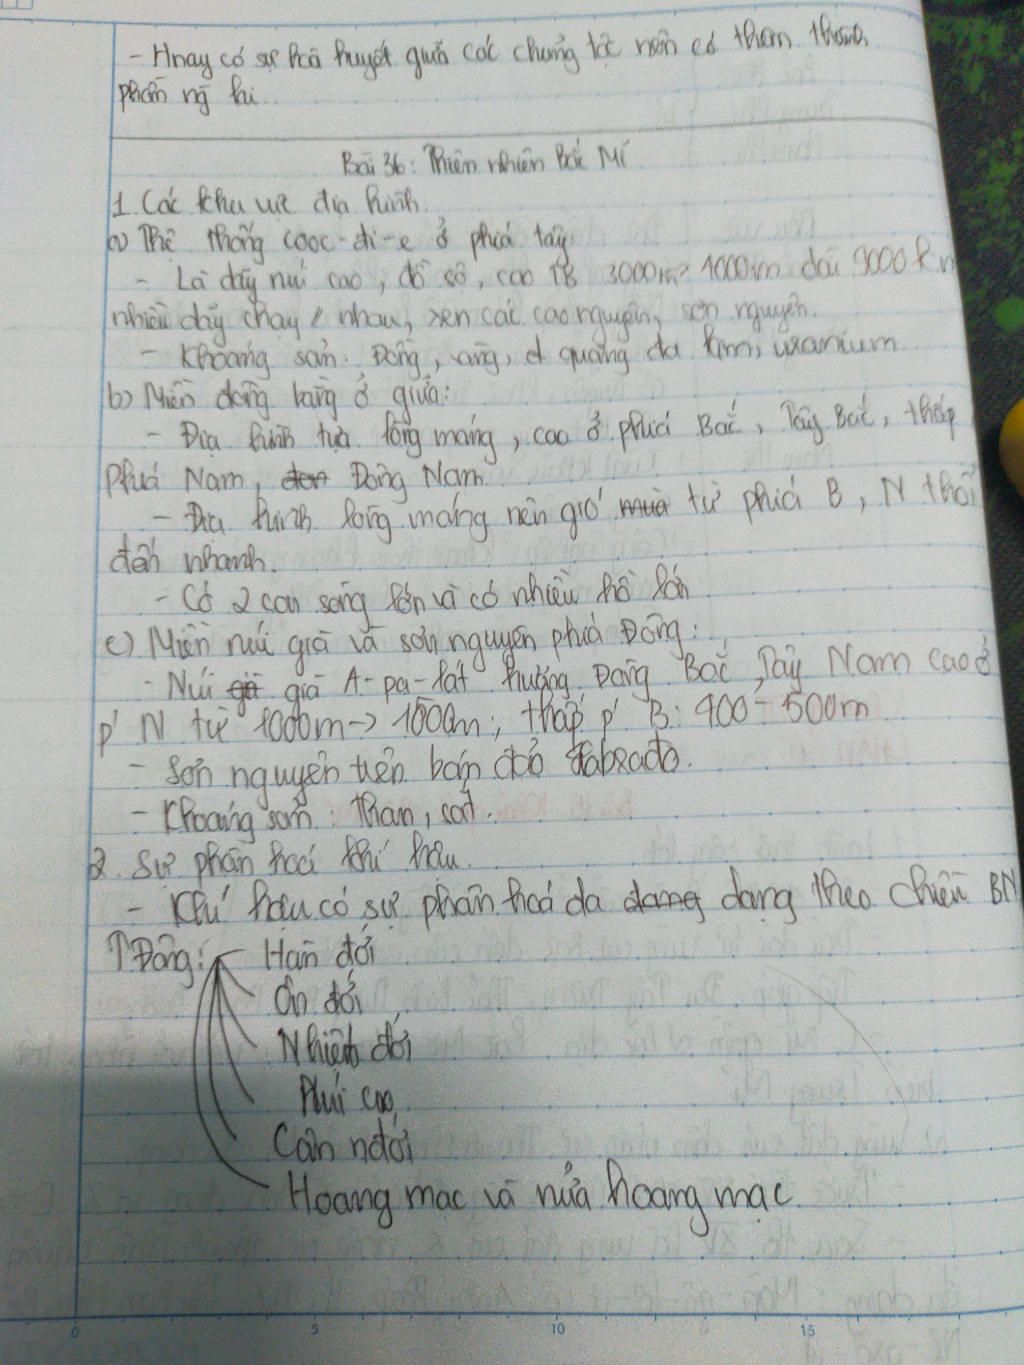 - Hnay có sự hoà huyết giữa các chủng tộc nên có thêm thành
phần ng lai
Bài 36: Thiên nhiên Bắc Mĩ
1. Các khu vực địa hình.
a) Hệ thống cooc-đi-e ở phía tây
- Là dãy núi cao, đồ sộ, cao TB 3000m dài 9000km
nhiều dãy chạy // nhau, xen các cao nguyên, sơn nguyên.
- Khoáng sản: Đồng, vàng, quặng đa kim, uranium
b) Miền đồng bằng ở giữa:
- Địa hình tựa lòng máng, cao ở phía Bắc, Tây Bắc, thấp
phía Nam, Đông Nam
- Địa hình lòng máng nên gió từ phía B, N thổi
đến nhanh.
- Có 2 con sông lớn và có nhiều hồ lớn
c) Miền núi già và sơn nguyên phía Đông:
- Núi già A-pa-lát hướng Đông Bắc, Tây Nam cao ở
p' N từ 1000m -> 1500m; thấp p' B: 400 - 500m
- Sơn nguyên trên bán đảo Labrado.
- Khoáng sản: than, sắt.
2. Sự phân hoá khí hậu.
- Khí hậu có sự phân hoá đa dạng theo chiều BN
TĐông: - Hàn đới
Ôn đới
Nhiệt đới
Núi cao
Cận nđới
Hoang mạc và nửa hoang mạc